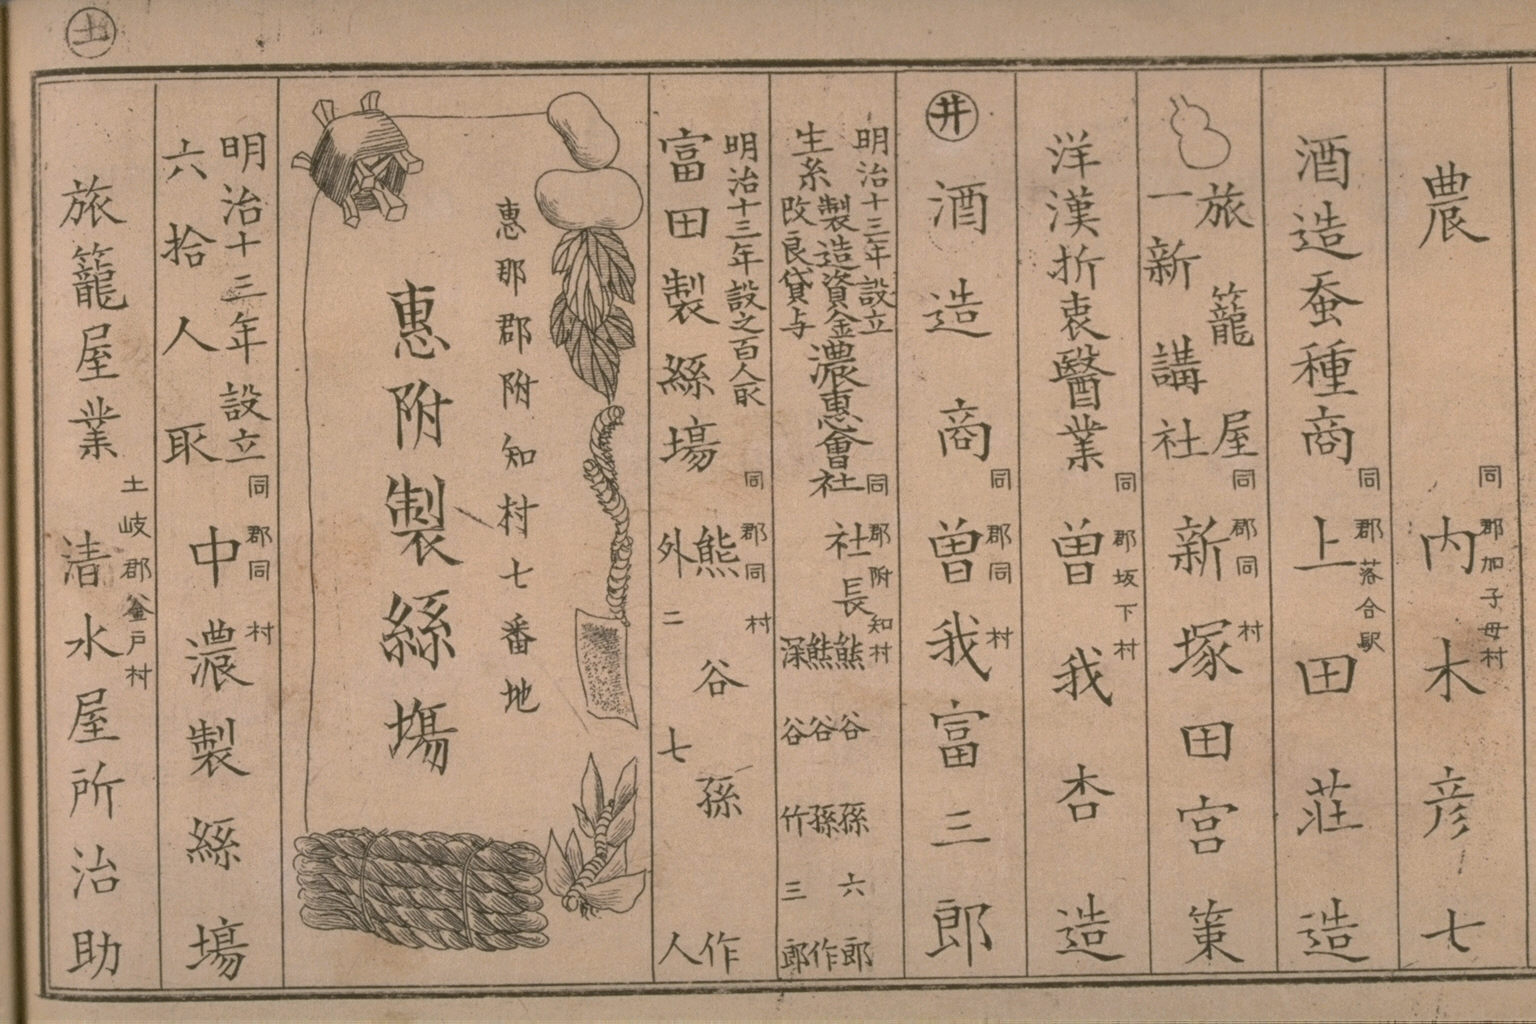 農
同郡加子母村
内木彦七
酒造蚕種商
同郡落合駅
上田荘造
旅籠屋
一新講社
同郡同村
新塚田宮策
洋漢折衷醫業
同郡坂下村
曽我杏造
井
酒造商
同郡同村
曽我富三郎
明治十三年設立
生糸製造資金
改良貸与
濃惠會社
同郡附知村
社長
熊谷孫六郎
熊谷孫作
深谷竹三郎
明治十三年設之百人取
富田製絲塲
同郡同村
熊谷孫作
外二七人
惠那郡附知村七番地
惠附製絲塲
明治十三年設立
六拾人取
同郡同村
中濃製絲塲
旅籠屋業
土岐郡釜戸村
清水屋所治助
土